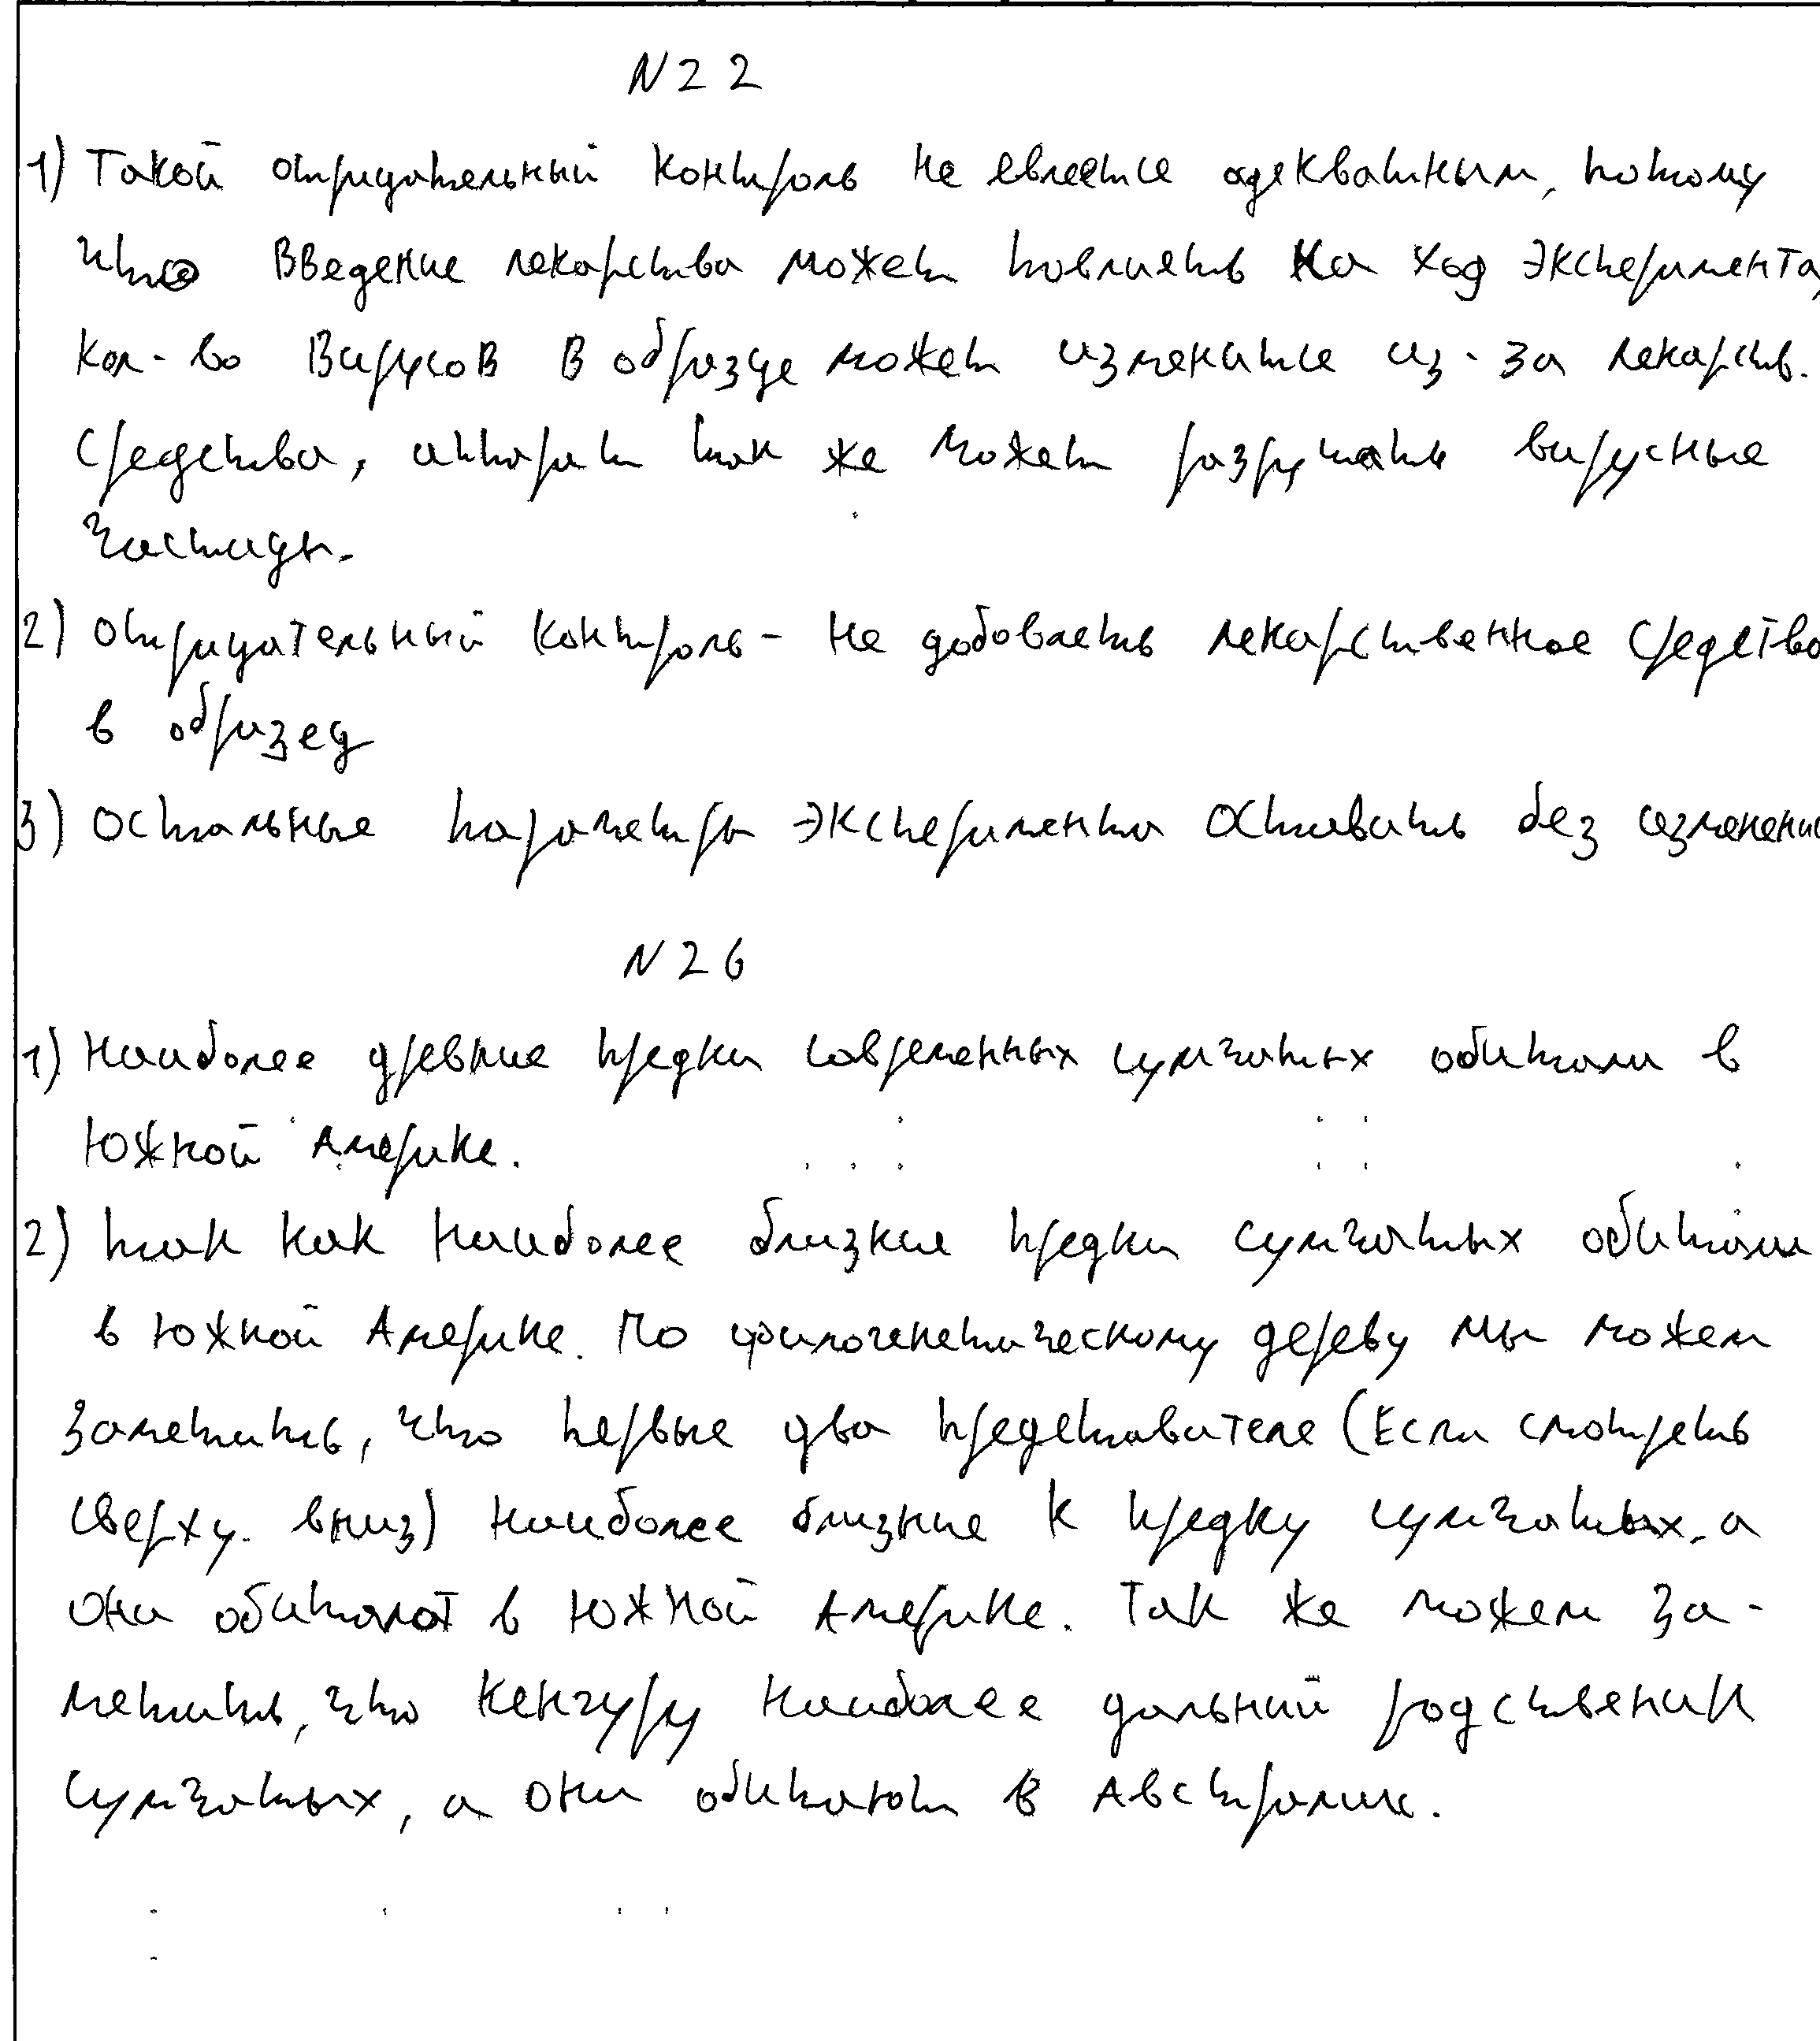 N22
1) Такой отрицательный контроль не евлеется адекватным, потому
что введение лекарства может повлиеть на ход эксперимента,
кол-во вирусов в образце может изменится из-за лекарств.
средства, аппарат так же может разрушать вирусные
частицы.
2) Отрицательный контроль - не добовлеть лекарственное средство
в образец
3) Остальные параметры эксперимента оставить без изменени
N26
1) Наиболее древние предки современных сумчатых обитали в
Южной Америке.
2) так как наиболее близкие предки сумчатых обитали
в Южной Америке. По филогенетическому дереву мы можем
заметить, что первые два представителе (Если смотреть
сверху. вниз) наиболее близкие к предку сумчатых, а
они обитают в Южной Америке. Так же можем за-
метить, что кенгуру наиболее дальний родственик
сумчатых, а они обитают в Австралии.